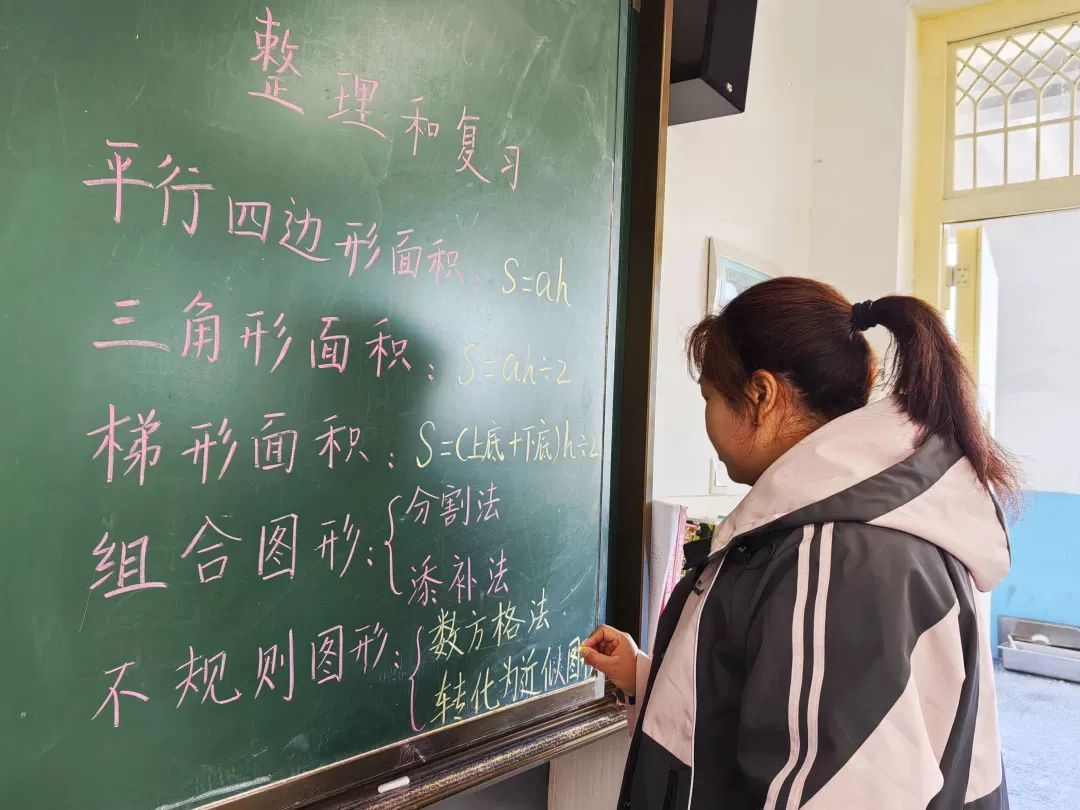 整理和复习
平行四边形面积：S=ah
三角形面积：S=ah÷2
梯形面积：S=(上底+下底)h÷2
组合图形：{分割法
添补法
不规则图形：{数方格法
转化为近似图